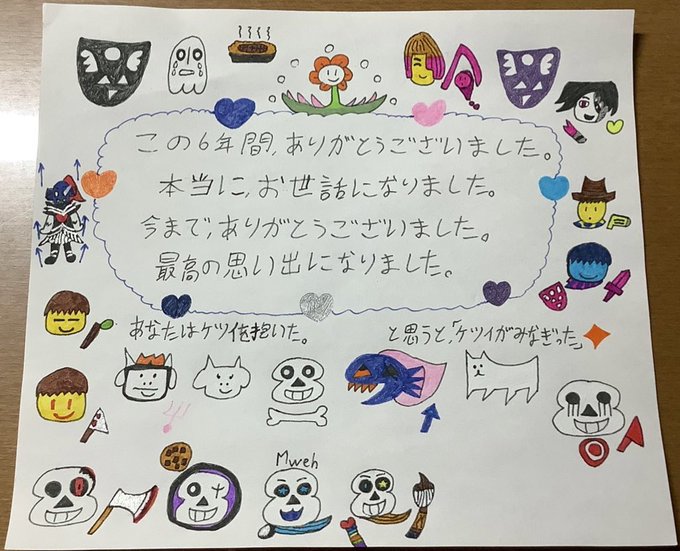 この6年間、ありがとうございました。
本当に、お世話になりました。
今まで、ありがとうございました。
最高の思い出になりました。
あなたはケツイを抱いた。
と思うと、「ケツイがみなぎった」
Mweh